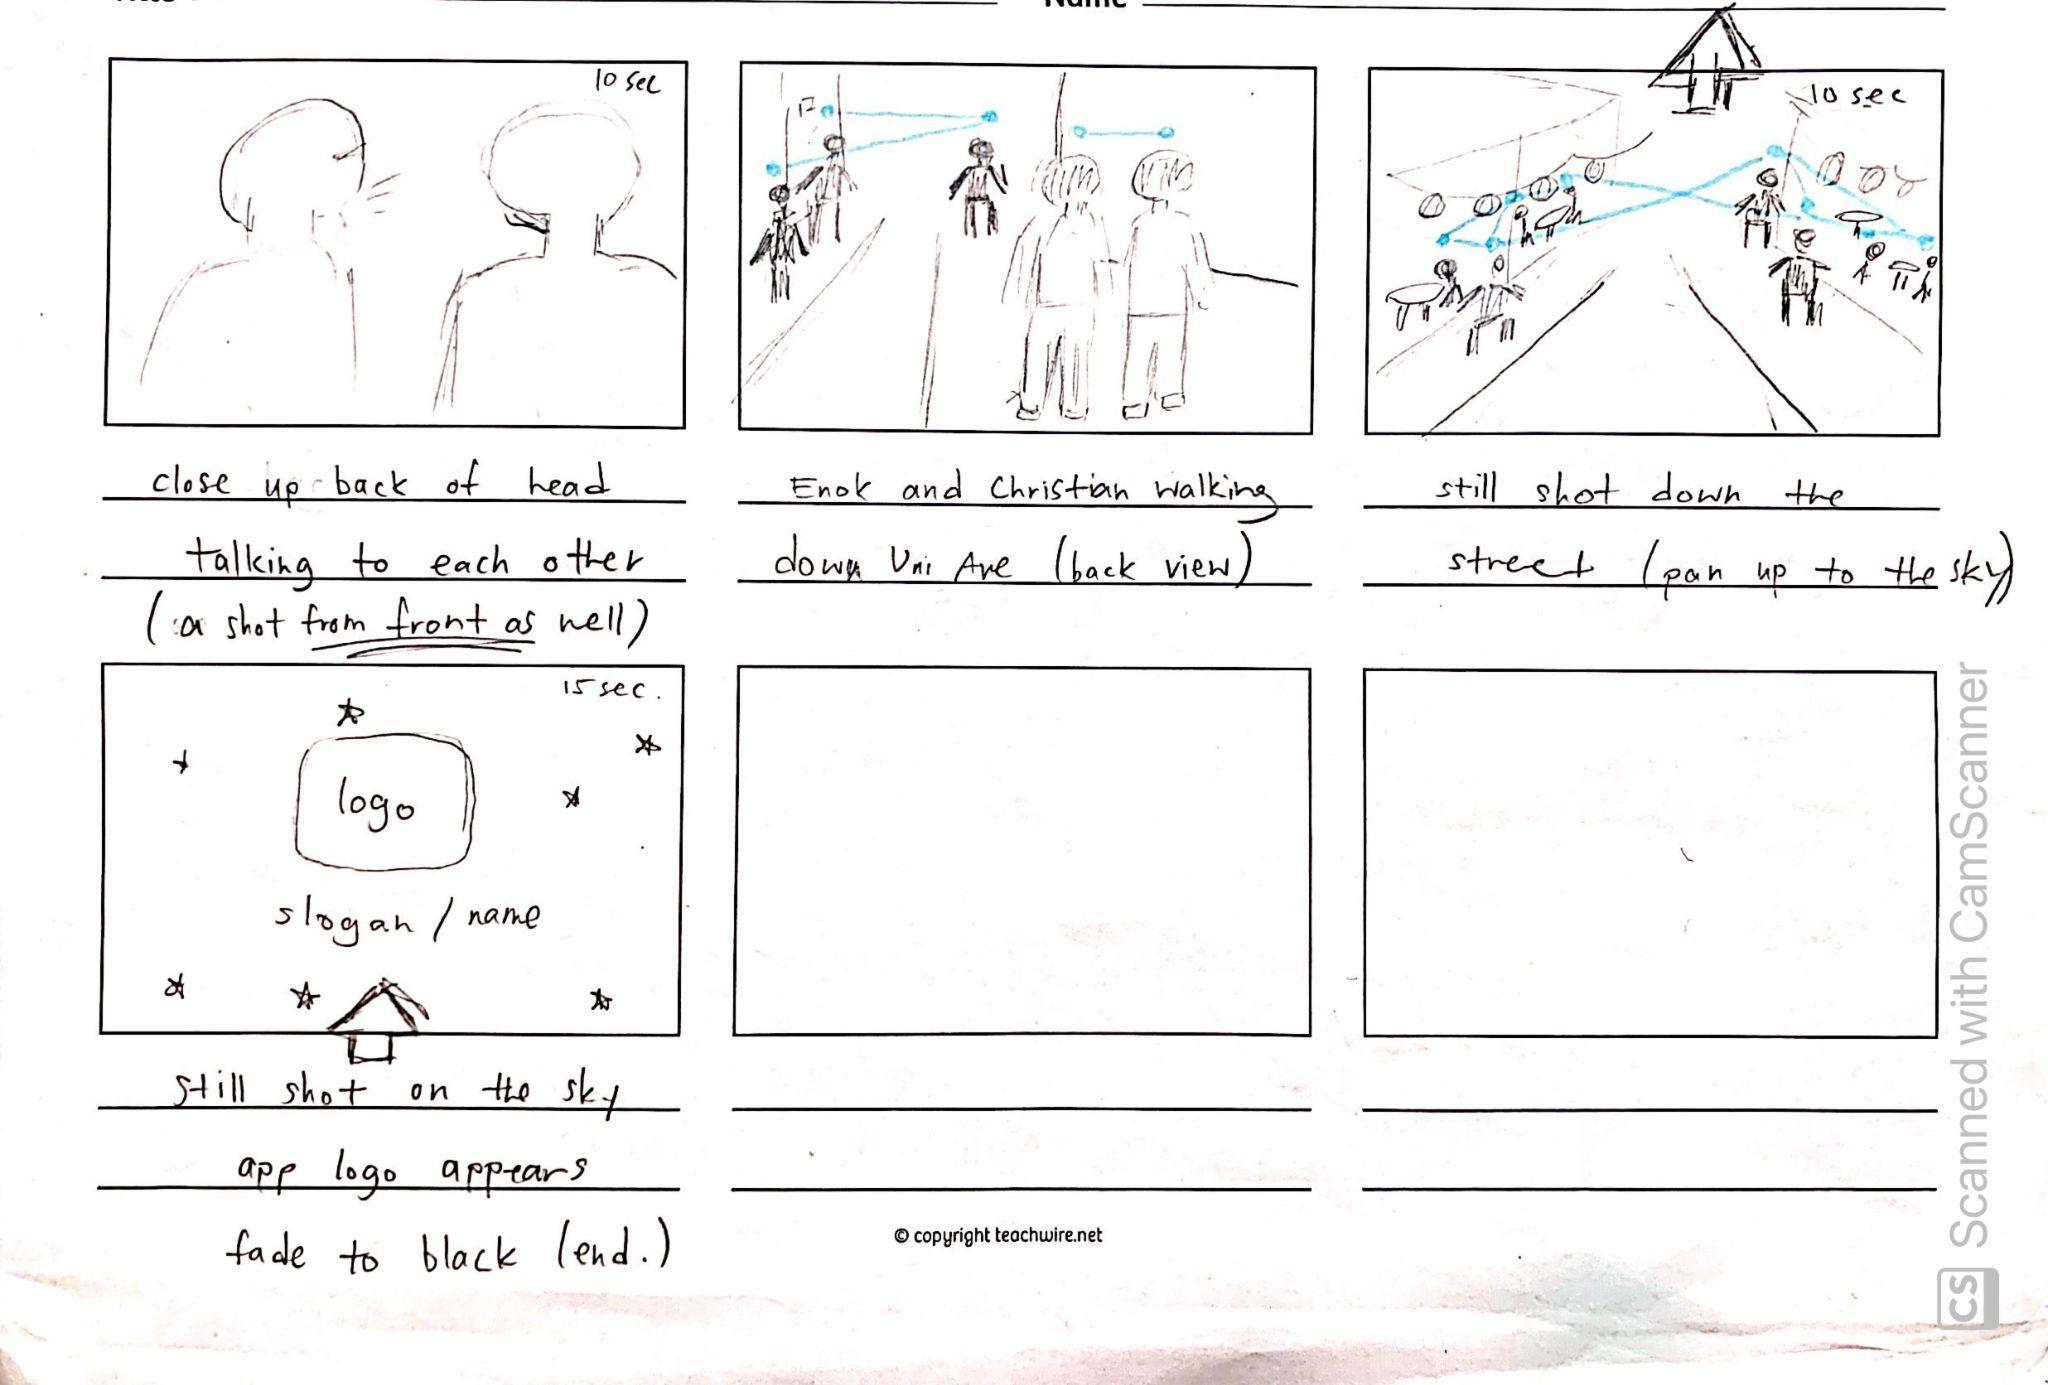 Name
10 sec
10 sec
close up back of head
talking to each other
(a shot from front as well)
Enok and Christian walking
down Uni Ave (back view)
still shot down the
street (pan up to the sky)
15 sec.
logo
slogan / name
still shot on the sky
app logo appears
fade to black (end.)
© copyright teachwire.net
CS Scanned with CamScanner